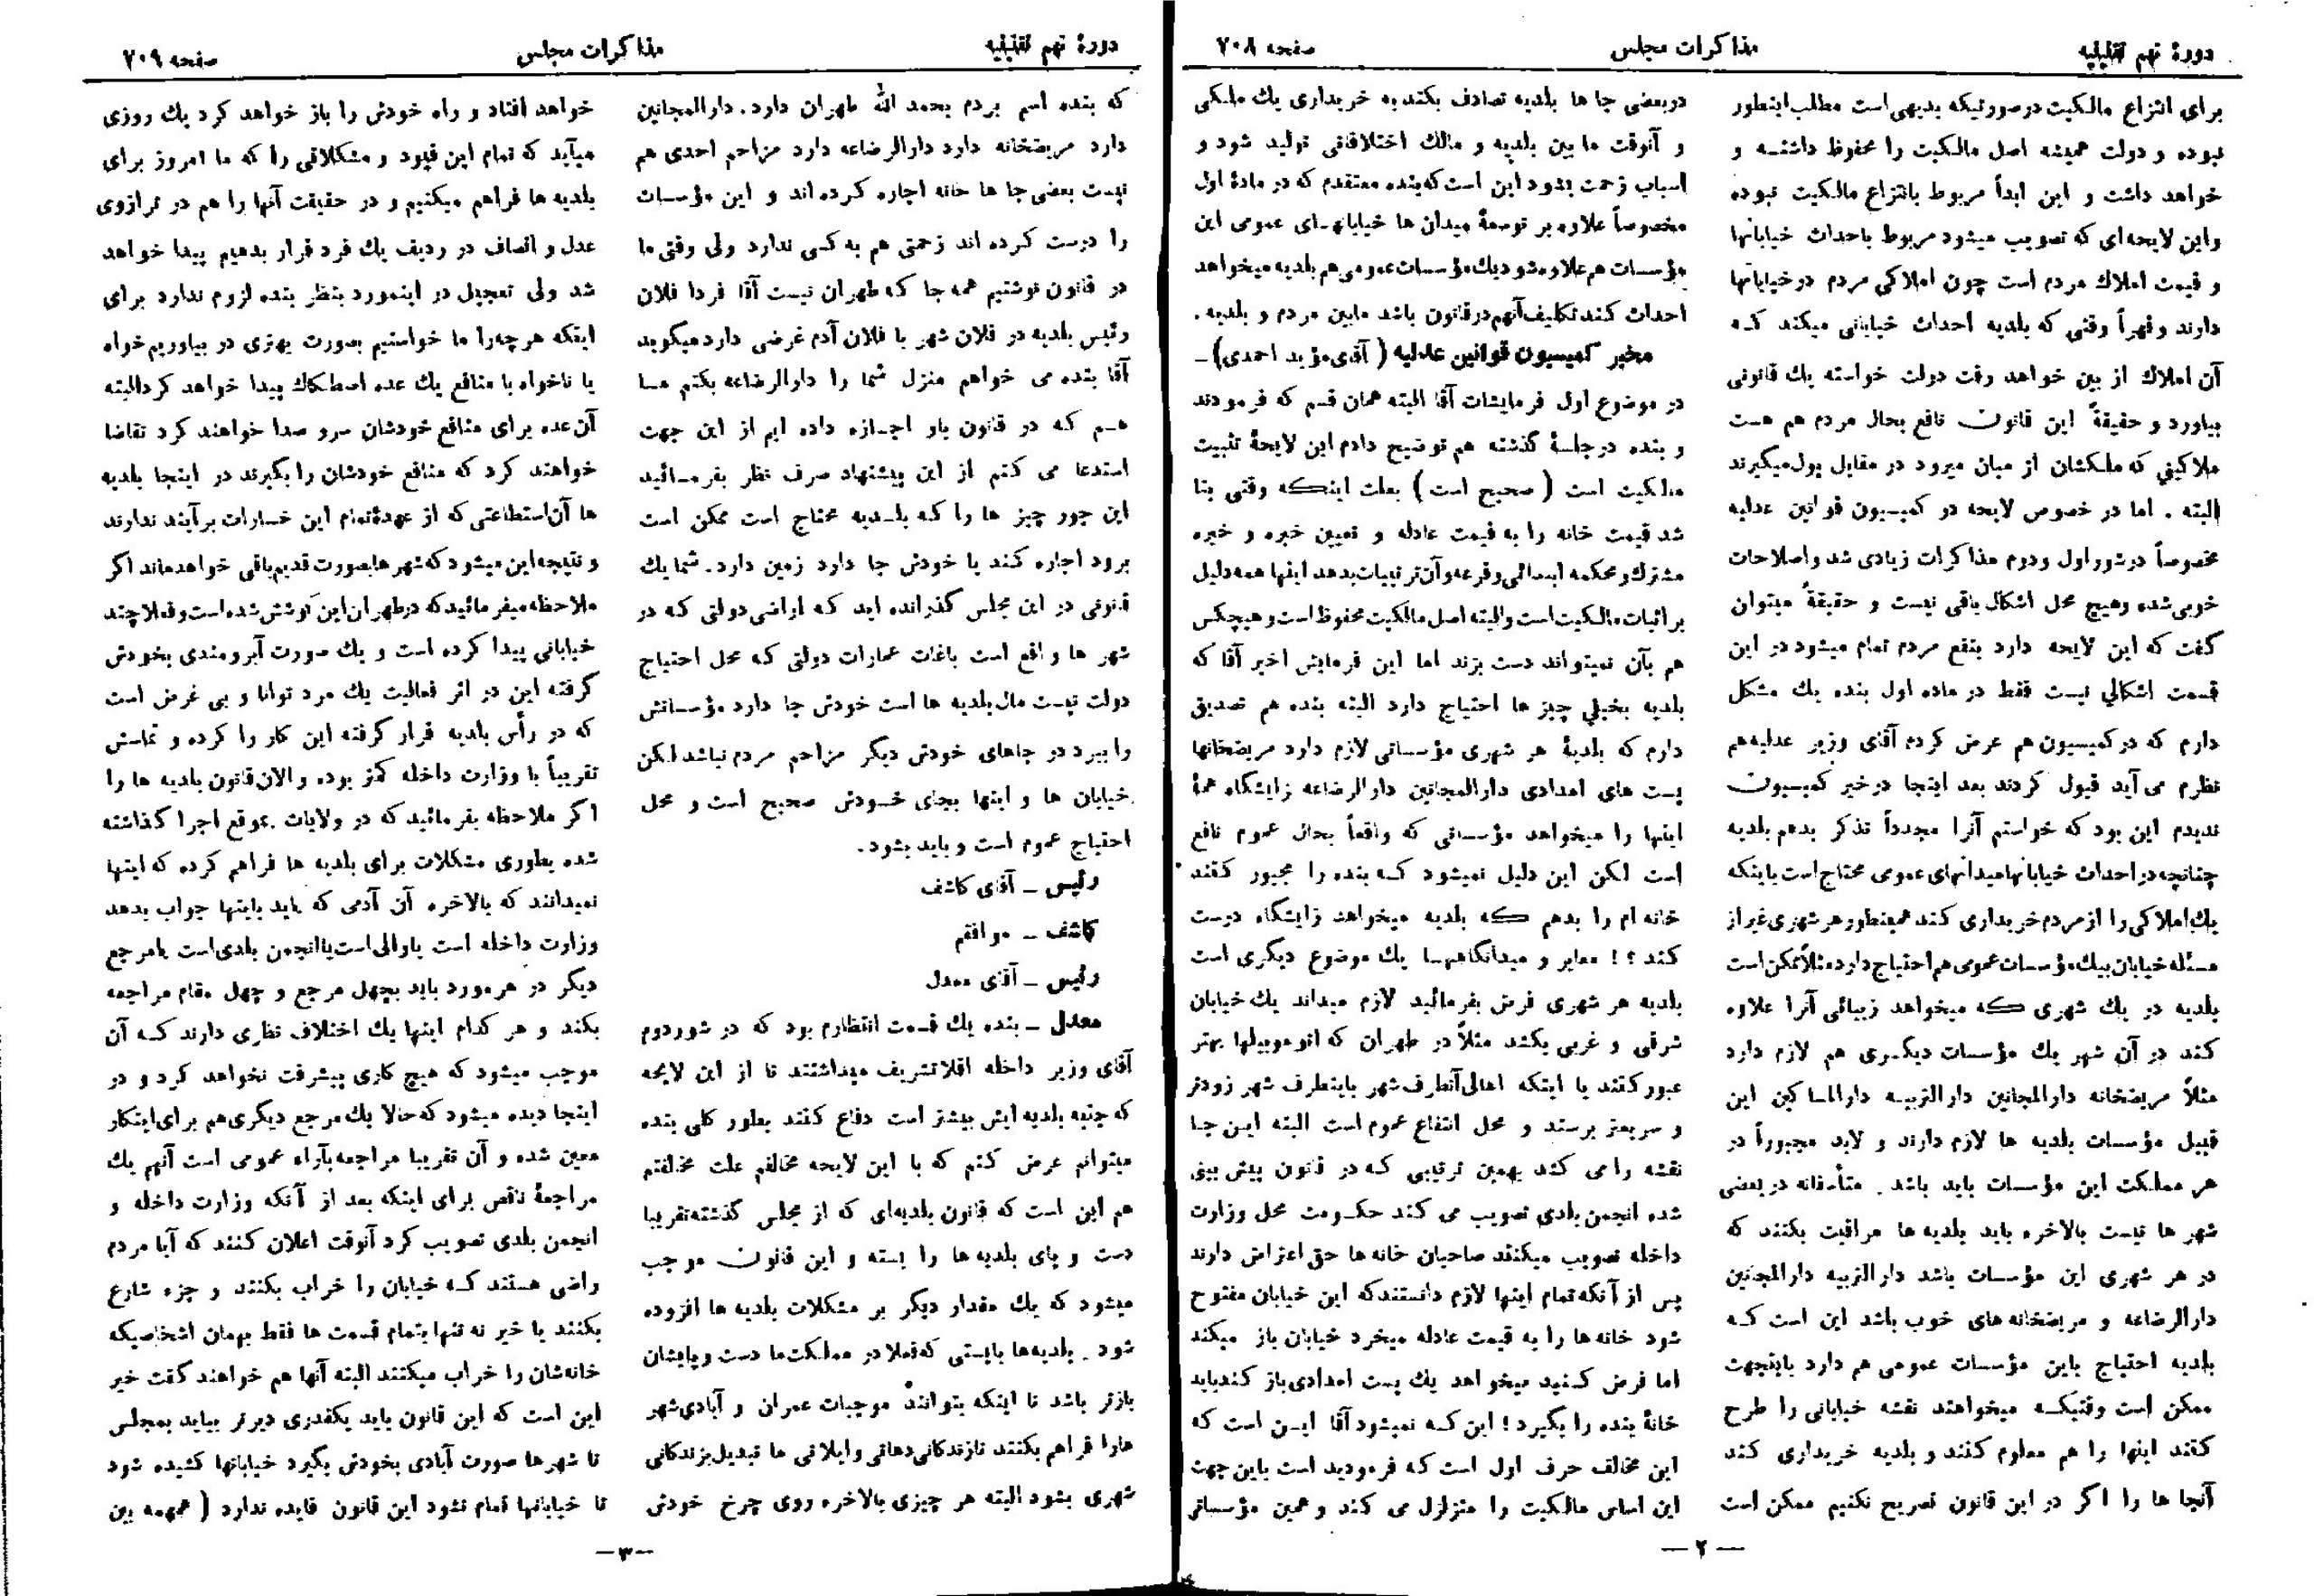 دورهٔ نهم تقنینیه
مذاکرات مجلس
صفحه ۷۰۸
برای انتزاع مالکیت درصورتیکه بدیهی است مطلب اینطور
نبوده و دولت همیشه اصل مالکیت را محفوظ داشته و
خواهد داشت و این ابداً مربوط بانتزاع مالکیت نبوده
واین لایحه‌ای که تصویب میشود مربوط باحداث خیابانها
و قیمت املاك مردم است چون املاکی مردم درخیابانها
دارند وقهراً وقتی که بلدیه احداث خیابانی میکند که
آن املاك از بین خواهد رفت دولت خواسته یك قانونی
بیاورد و حقیقةً این قانون نافع بحال مردم هم هست
ملاکینی که ملکشان از میان میرود در مقابل پول میگیرند
البته . اما در خصوص لایحه در کمیسیون قوانین عدلیه
مخصوصاً درشور اول ودوم مذاکرات زیادی شد واصلاحات
خوبی شده وهیچ محل اشکال باقی نیست و حقیقةً میتوان
گفت که این لایحه دارد بنفع مردم تمام میشود در این
قسمت اشکالی نیست فقط در ماده اول بنده یك مشکل
دارم که در کمیسیون هم عرض کردم آقای وزیر عدلیه هم
نظرم می آید قبول کردند بعد اینجا درخبر کمیسیون
ندیدم این بود که خواستم آنرا مجدداً تذکر بدهم بلدیه
چنانچه در احداث خیابانها میدانهای عمومی محتاج است باینکه
یك املاکی را از مردم خریداری کند همینطور هر شهری غیر از
مسئله خیابان بیك مؤسسات عمومی هم احتیاج دارد مثلاً ممکن است
بلدیه در یك شهری که میخواهد زیبائی آنرا علاوه
کند در آن شهر یك مؤسسات دیگری هم لازم دارد
مثلاً مریضخانه دارالمجانین دارالتربیه دارالمساکین این
قبیل مؤسسات بلدیه ها لازم دارند و لابد مجبوراً در
هر مملکت این مؤسسات باید باشد . متأسفانه در بعضی
شهر ها نیست بالاخره باید بلدیه ها مراقبت بکنند که
در هر شهری این مؤسسات باشد دارالتربیه دارالمجانین
دارالرضاعه و مریضخانه های خوب باشد این است که
بلدیه احتیاج باین مؤسسات عمومی هم دارد باینجهت
ممکن است وقتیکه میخواهند نقشه خیابانی را طرح
کنند اینها را هم معلوم کنند و بلدیه خریداری کند
آنجا ها را اگر در این قانون تصریح نکنیم ممکن است
دربعضی جا ها بلدیه تصادف بکند به خریداری یك ملکی
و آنوقت ما بین بلدیه و مالك اختلافاتی تولید شود و
اسباب زحمت بشود این است که بنده معتقدم که در مادهٔ اول
مخصوصاً علاوه بر توسعهٔ میدان ها خیابانهای عمومی این
مؤسسات هم علاوه شود یك مؤسسات عمومی هم بلدیه میخواهد
احداث کند تکلیف آنهم درقانون باشد مابین مردم و بلدیه .
مخبر کمیسیون قوانین عدلیه ( آقای مؤید احمدی) -
در موضوع اول فرمایشات آقا البته همان قسم که فرمودند
و بنده در جلسهٔ گذشته هم توضیح دادم این لایحهٔ تثبیت
مالکیت است ( صحیح است ) بعلت اینکه وقتی بنا
شد قیمت خانه را به قیمت عادله و تعیین خبره و خبره
مشترك و محکمه ابتدائی و قرعه و آن ترتیبات بدهد اینها همه دلیل
بر اثبات مالکیت است والبته اصل مالکیت محفوظ است و هیچکس
هم بآن نمیتواند دست بزند اما این فرمایش اخیر آقا که
بلدیه بخیلی چیز ها احتیاج دارد البته بنده هم تصدیق
دارم که بلدیهٔ هر شهری مؤسساتی لازم دارد مریضخانها
پست های امدادی دارالمجانین دارالرضاعه زایشگاه همهٔ
اینها را میخواهد مؤسساتی که واقعاً بحال عموم نافع
است لکن این دلیل نمیشود که بنده را مجبور کنند
خانه ام را بدهم که بلدیه میخواهد زایشگاه درست
کند ؟ ! معابر و میدانگاهها یك موضوع دیگری است
بلدیه هر شهری فرض بفرمائید لازم میداند یك خیابان
شرقی و غربی بکشد مثلاً در طهران که اتوموبیلها بهتر
عبور کنند یا اینکه اهالی آنطرف شهر باینطرف شهر زودتر
و سریعتر برسند و محل انتفاع عموم است البته این جا
نقشه را می کند بهمین ترتیبی که در قانون پیش بینی
شده انجمن بلدی تصویب می کند حکومت محل وزارت
داخله تصویب میکنند صاحبان خانه ها حق اعتراض دارند
پس از آنکه تمام اینها لازم دانستند که این خیابان مفتوح
شود خانه ها را به قیمت عادله میخرد خیابان باز میکند
اما فرض کنید میخواهد یك پست امدادی باز کند باید
خانهٔ بنده را بگیرد ! این که نمیشود آقا این است که
این مخالف حرف اول است که فرمودید است باین جهت
این اساس مالکیت را متزلزل می کند و همین مؤسساتی
— ۲ —
دورهٔ نهم تقنینیه
مذاکرات مجلس
صفحه ۷۰۹
که بنده اسم بردم بحمد الله طهران دارد. دارالمجانین
دارد مریضخانه دارد دارالرضاعه دارد مزاحم احدی هم
نیست بعضی جا ها خانه اجاره کرده اند و این مؤسسات
را درست کرده اند زحمتی هم به کسی ندارد ولی وقتی ما
در قانون نوشتیم همه جا که طهران نیست آقا فردا فلان
رئیس بلدیه در فلان شهر با فلان آدم غرضی دارد میگوید
آقا بنده می خواهم منزل شما را دارالرضاعه بکنم ما
هم که در قانون باو اجازه داده ایم از این جهت
استدعا می کنم از این پیشنهاد صرف نظر بفرمائید
این جور چیز ها را که بلدیه محتاج است ممکن است
برود اجاره کند یا خودش جا دارد زمین دارد. شما یك
قانونی در این مجلس گذرانده اید که اراضی دولتی که در
شهر ها واقع است باغات عمارات دولتی که محل احتیاج
دولت نیست مال بلدیه ها است خودش جا دارد مؤسساتش
را ببرد در جاهای خودش دیگر مزاحم مردم نباشد لکن
خیابان ها و اینها بجای خودش صحیح است و محل
احتیاج عموم است و باید بشود.
رئیس - آقای کاشف
کاشف - موافقم
رئیس - آقای معدل
معدل - بنده یك قسمت انتظارم بود که در شور دوم
آقای وزیر داخله اقلا تشریف میداشتند تا از این لایحه
که جنبه بلدیه ایش بیشتر است دفاع کنند بطور کلی بنده
میتوانم عرض کنم که با این لایحه مخالفم علت مخالفتم
هم این است که قانون بلدیه‌ای که از مجلس گذشته تقریبا
دست و پای بلدیه ها را بسته و این قانون موجب
میشود که یك مقدار دیگر بر مشکلات بلدیه ها افزوده
شود . بلدیه‌ها بایستی که فعلا در مملکت ما دست و پایشان
بازتر باشد تا اینکه بتوانند موجبات عمران و آبادی شهر
هارا فراهم بکنند تا زندگانی دهاتی و ایلاتی ما تبدیل بزندگانی
شهری بشود البته هر چیزی بالاخره روی چرخ خودش
خواهد افتاد و راه خودش را باز خواهد کرد یك روزی
میآید که تمام این قیود و مشکلاتی را که ما امروز برای
بلدیه ها فراهم میکنیم و در حقیقت آنها را هم در ترازوی
عدل و انصاف در ردیف یك فرد قرار بدهیم پیدا خواهد
شد ولی تعجیل در اینمورد بنظر بنده لزوم ندارد برای
اینکه هر چه را ما خواستیم بصورت بهتری در بیاوریم خواه
یا ناخواه با منافع یك عده اصطکاك پیدا خواهد کرد البته
آن عده برای منافع خودشان سرو صدا خواهند کرد تقاضا
خواهند کرد که منافع خودشان را بگیرند در اینجا بلدیه
ها آن استطاعتی که از عهدهٔ تمام این خسارات برآیند ندارند
و نتیجه این میشود که شهر ها بصورت قدیم باقی خواهد ماند اگر
ملاحظه میفرمائید که در طهران این کوشش شده است و فعلا چند
خیابانی پیدا کرده است و یك صورت آبرومندی بخودش
گرفته این در اثر فعالیت یك مرد توانا و بی غرض است
که در رأس بلدیه قرار گرفته این کار را کرده و تماسش
تقریباً با وزارت داخله کمتر بوده و الان قانون بلدیه ها را
اگر ملاحظه بفرمائید که در ولایات بموقع اجرا گذاشته
شده بطوری مشکلات برای بلدیه ها فراهم کرده که اینها
نمیدانند که بالاخره آن آدمی که باید باینها جواب بدهد
وزارت داخله است یا والی است یا انجمن بلدی است یا مرجع
دیگر در هر مورد باید بچهل مرجع و چهل مقام مراجعه
بکند و هر کدام اینها یك اختلاف نظری دارند که آن
موجب میشود که هیچ کاری پیشرفت نخواهد کرد و در
اینجا دیده میشود که حالا یك مرجع دیگری هم برای اینکار
معین شده و آن تقریبا مراجعه بآراء عمومی است آنهم یك
مراجعهٔ ناقص برای اینکه بعد از آنکه وزارت داخله و
انجمن بلدی تصویب کرد آنوقت اعلان کنند که آیا مردم
راضی هستند که خیابان را خراب بکنند و جزء شارع
بکنند یا خیر نه تنها بتمام قسمت ها فقط بهمان اشخاصیکه
خانه‌شان را خراب میکنند البته آنها هم خواهند گفت خیر
این است که این قانون باید یکقدری دیرتر بیاید بمجلس
تا شهرها صورت آبادی بخودش بگیرد خیابانها کشیده شود
تا خیابانها تمام نشود این قانون فایده ندارد ( همهمه بین
—۳—